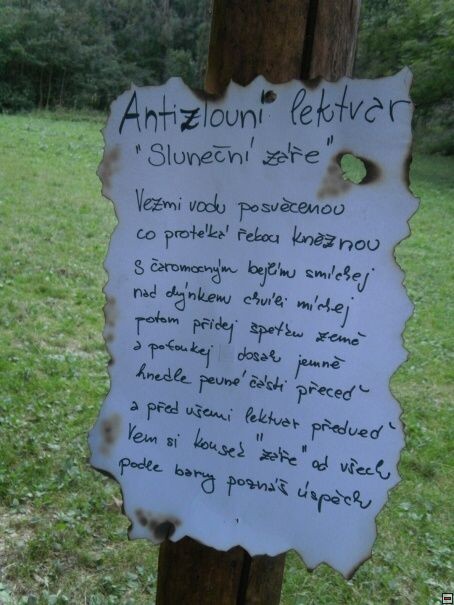 Antizlouní lektvar
"Sluneční záře"
Vezmi vodu posvěcenou
co protéká řekou kněžnou
s čaromocným bejlím smíchej
nad dýnkem chvíli míchej
potom přidej špetku země
a pofoukej dosah jemně
hnedle pevné části přeceď
a před všemi lektvar předveď
Vem si kousek "záře" od všech
podle barvy poznáš úspěch